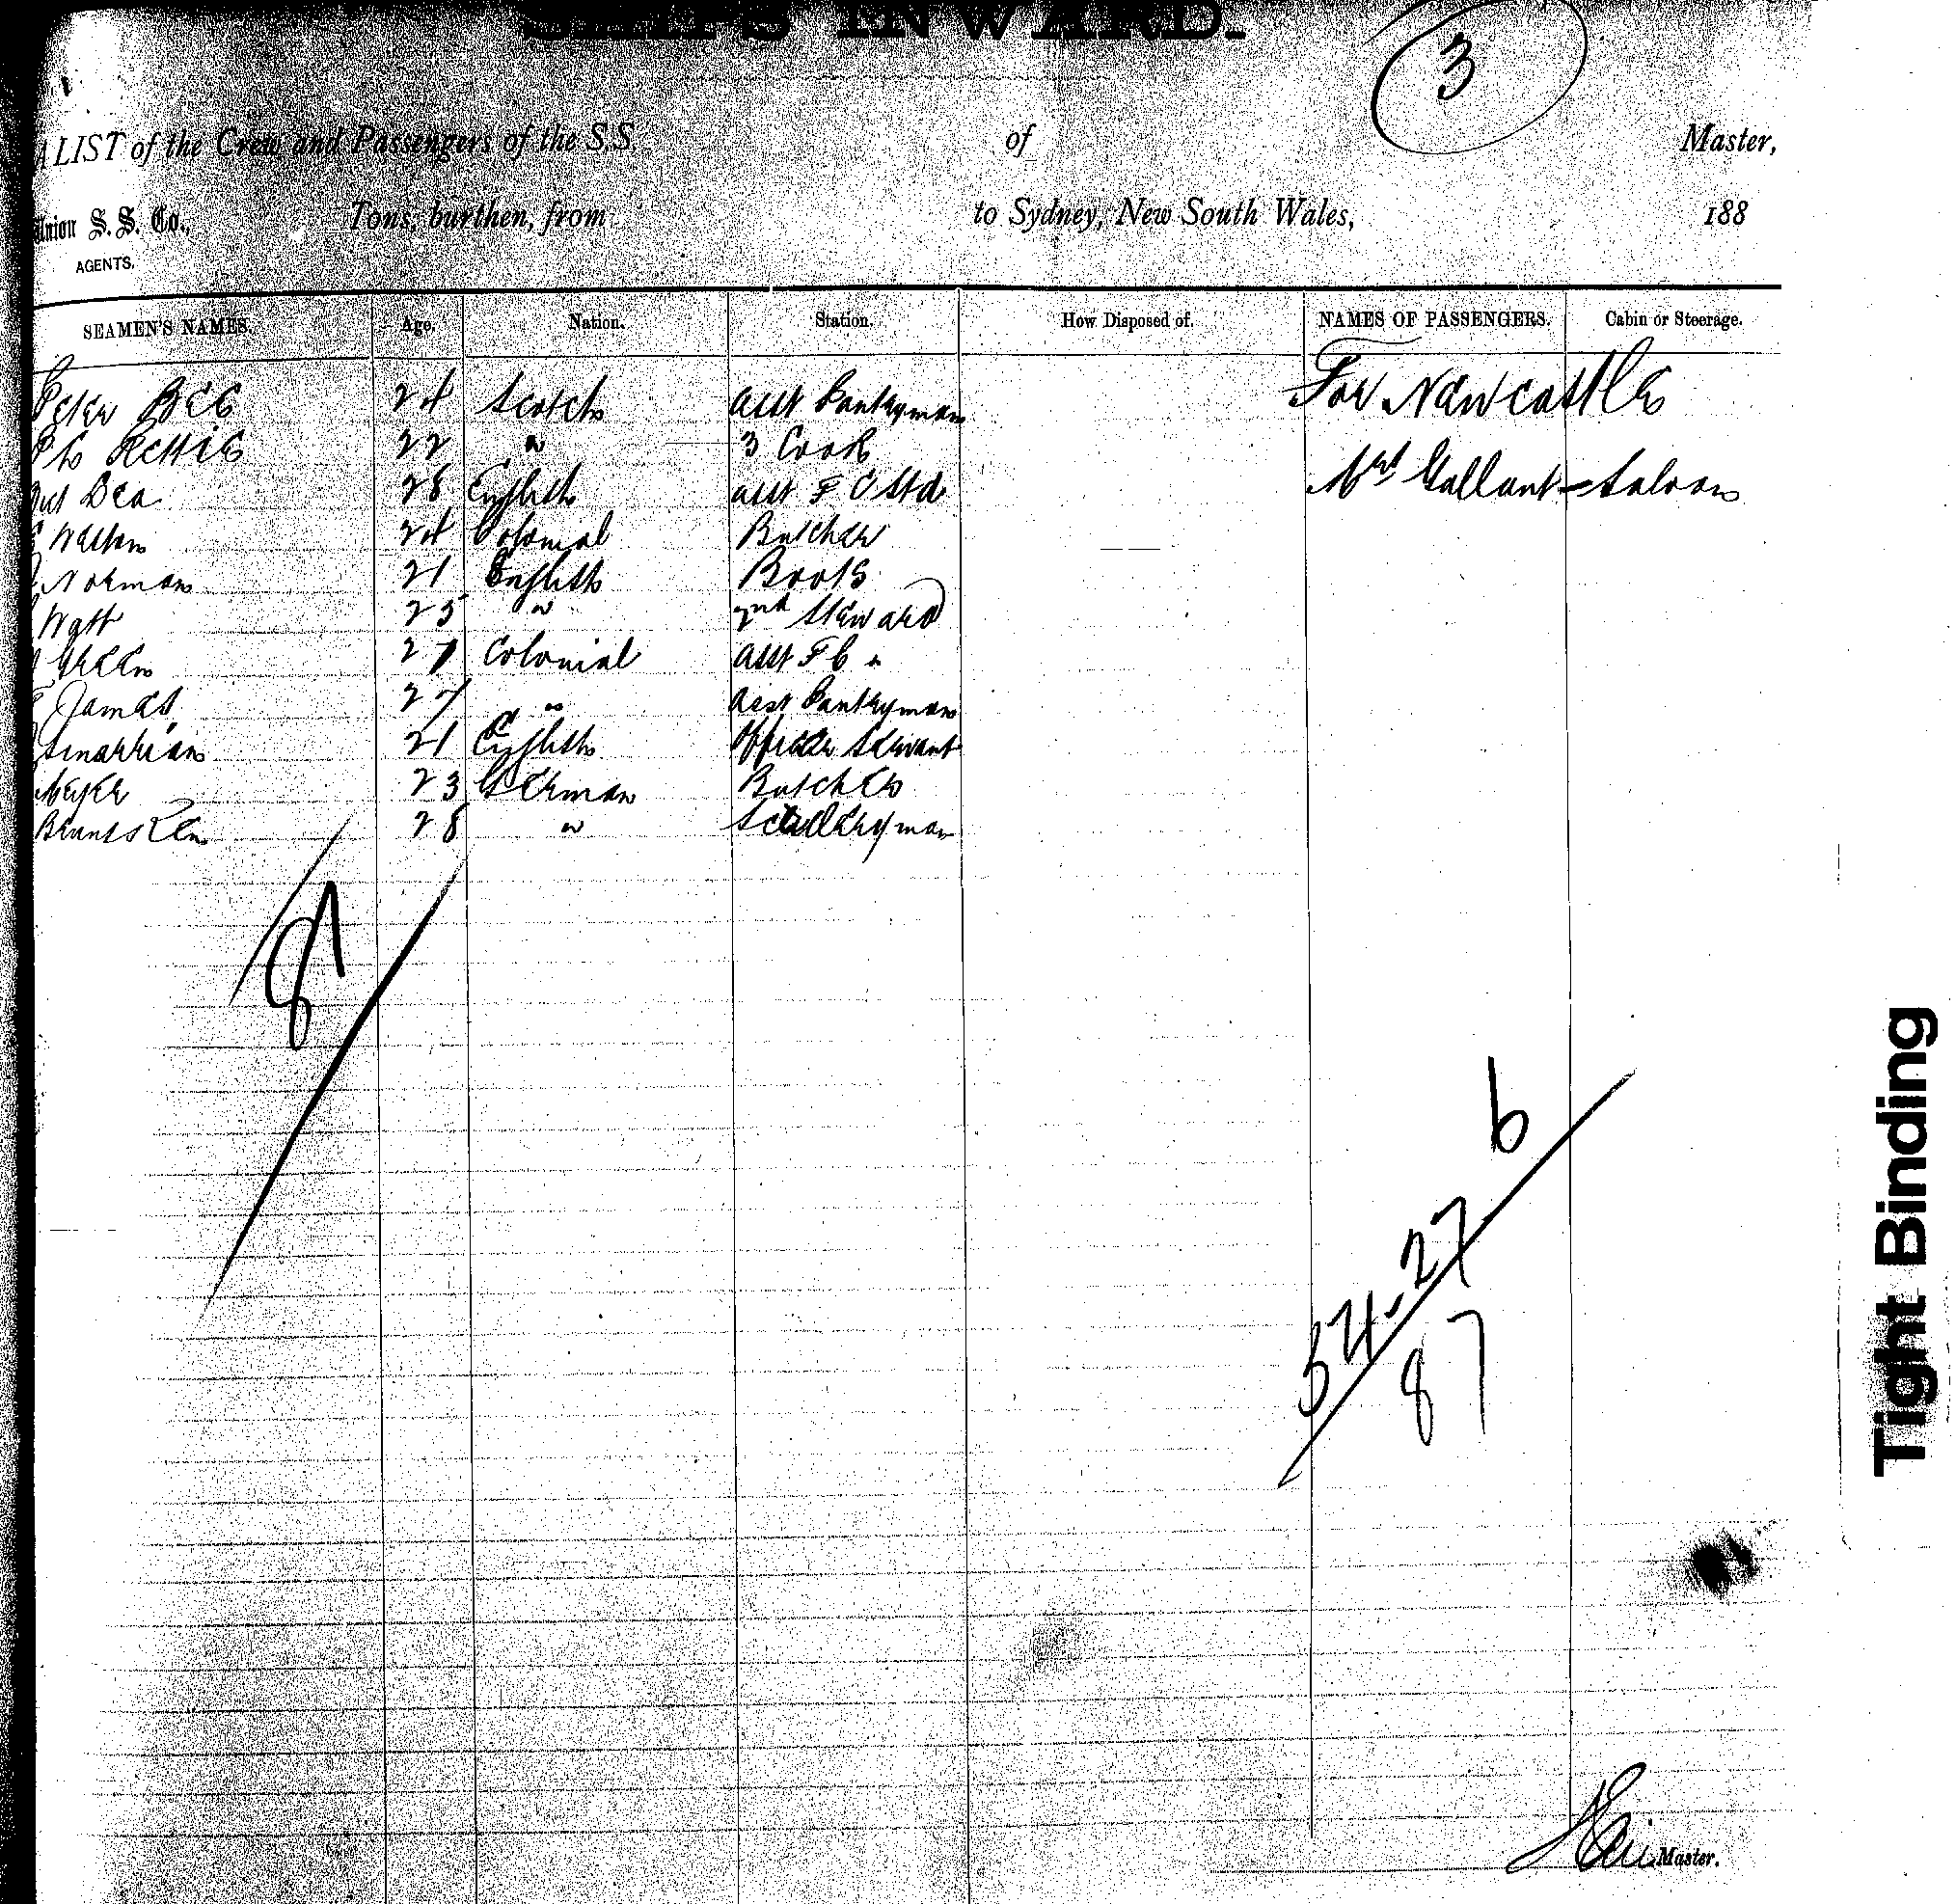 SHIPS INWARD.
3
A LIST of the Crew and Passengers of the S.S. of Master,
Union S. S. Co., Tons, burthen, from to Sydney, New South Wales, 188
AGENTS.
SEAMEN'S NAMES. Age. Nation. Station. How Disposed of. NAMES OF PASSENGERS. Cabin or Steerage.
For Newcastle
Peter Beg 24 Scotch asst Pantryman
Rettie 22 " 3 Cook
Mrs Gallant - Saloon
Dea 28 English asst F C Std
Walton 24 Colonial Butcher
Norman 21 English Boots
Watt 25 " 2nd Steward
Green 27 Colonial asst F C "
James 27 " asst Pantryman
21 English Officers Servant
Meyer 23 German Butcher
28 " Sculleryman
87
6
54-27
87
Master.
Tight Binding